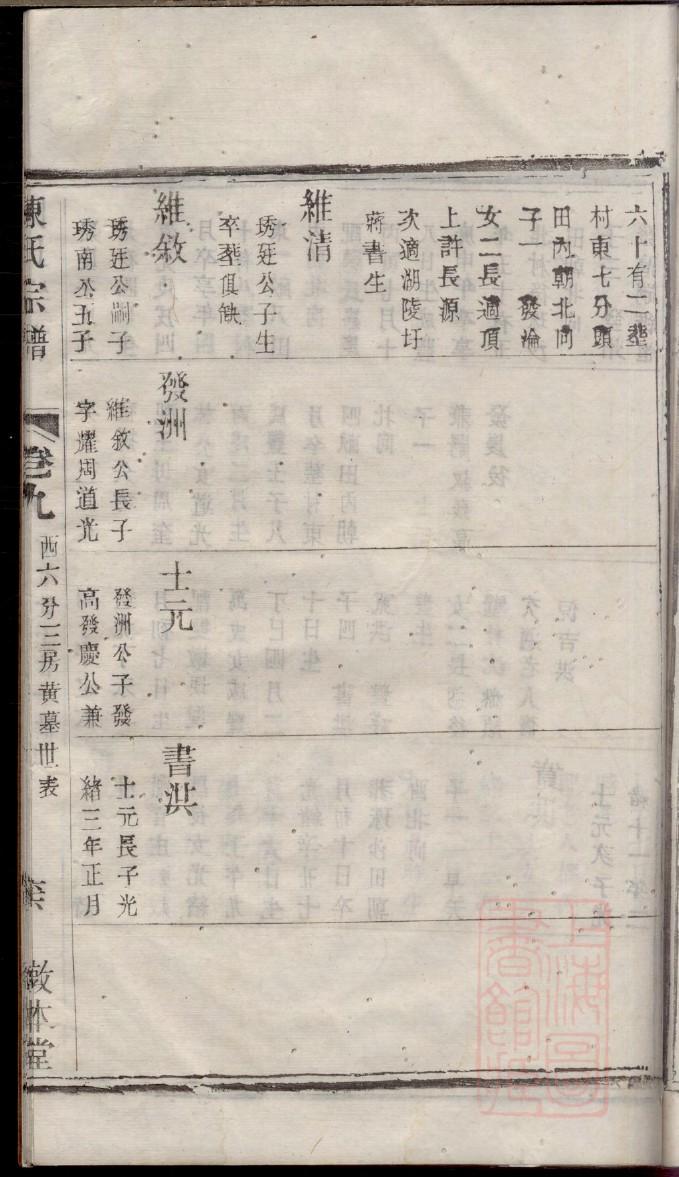 六十有二塟
村東七分頭
田內朝北向
子一　發淪
女二長適頂
上許長源
次適湖陵圩
蔣書生
維清
琇廷公子生
卒塟俱缺
維敘
琇廷公嗣子
琇南公五子
發洲
維敘公長子
字耀周道光
士元
發洲公子發
高發慶公兼
書洪
士元長子光
緒三年正月
陳氏宗譜
卷九
西六分三房黃墓世表
敦本堂
上海圖書館藏